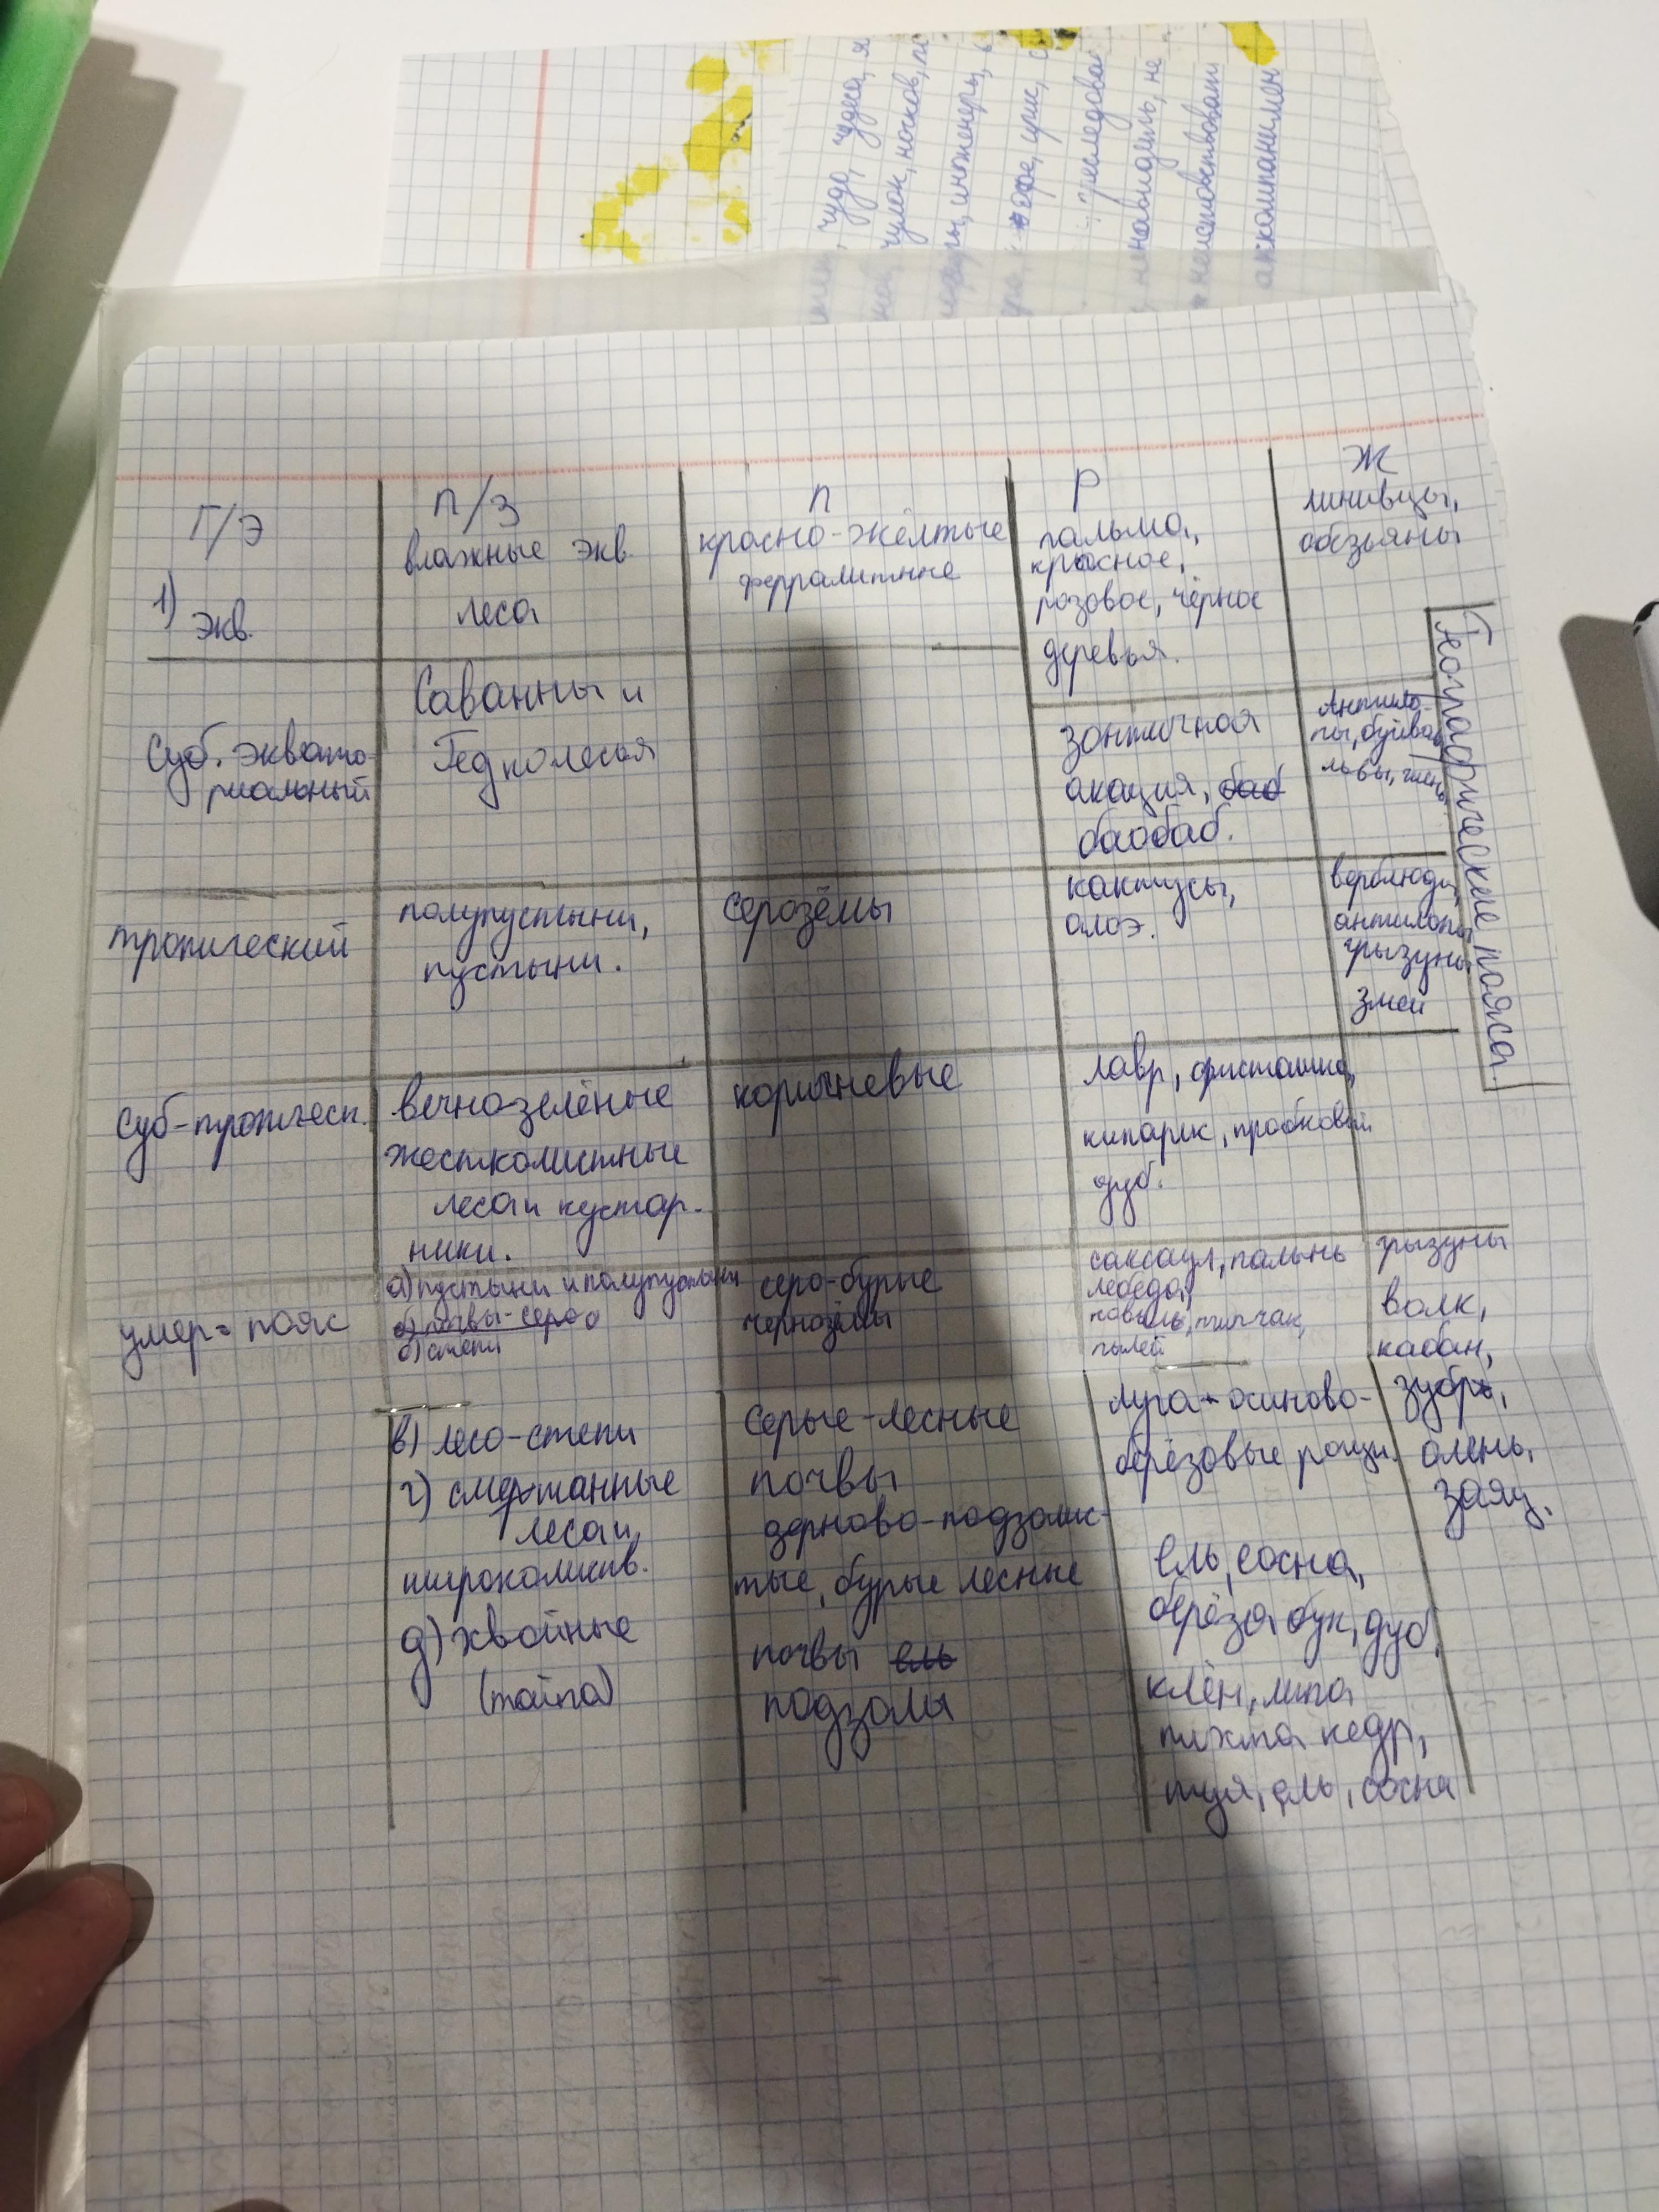 чудо, чудеса, я
чулок, носков, п
инженеры,
преследова
ненавидеть, не
неистовствовать
аккомпанимен
Географические пояса.
Г/Э
П/З
П
Р
Ж
1) экв.
влажные экв.
леса
красно-жёлтые
ферралитные
пальма,
красное,
розовое, чёрное
деревья.
ленивцы,
обезьяны
Суб. эквато-
риальный
Саванны и
Редколесья
зонтичная
акация, баоб
баобаб.
Антило-
пы, буйвол
львы,
тропический
полупустыни,
пустыни.
серозёмы
кактусы,
алоэ.
верблюды,
антилопы
грызуны
змеи
Суб-тропическ.
вечнозелёные
жестколистные
леса и кустар-
ники.
коричневые
лавр, фисташка,
кипарис, пробковый
дуб.
умер= пояс
а) пустыни и полупустыни
б) почвы-серо
б) степи
серо-бурые
чернозёмы
саксаул, палынь
лебеда,
ковыль, типчак,
пылей
грызуны
волк,
кабан,
зубр,
олень,
заяц.
в) лесо-степи
г) смешанные
леса и
широколиств.
д) хвойные
(тайга)
серые-лесные
почвы
дерново-подзолис-
тые, бурые лесные
почвы ель
подзолы
луга-осиново-
берёзовые рощи.
ель, сосна,
берёза бук, дуб,
клён, липа
пихта кедр,
туя, ель, сосна